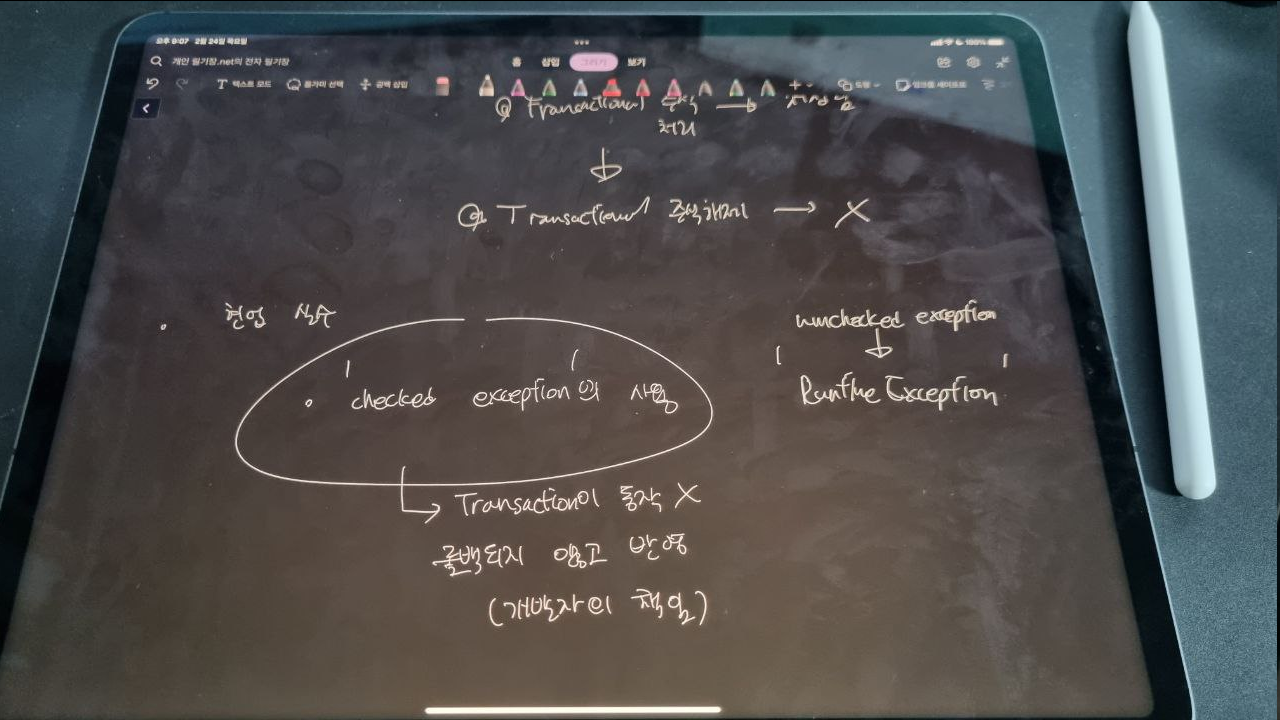 오후 9:07 2월 24일 목요일
100%
개인 필기장.net의 전자 필기장
홈 삽입 그리기 보기
텍스트 모드 올가미 선택 공백 삽입 도형
@ Transactional 주석 → 저장 됨
처리
↓
@ Transactional 주석해제 → X
현업 실수
unchecked exception
↓
checked exception의 사용
Runtime Exception
→ Transaction이 동작 X
롤백되지 않고 반영
(개발자의 책임)